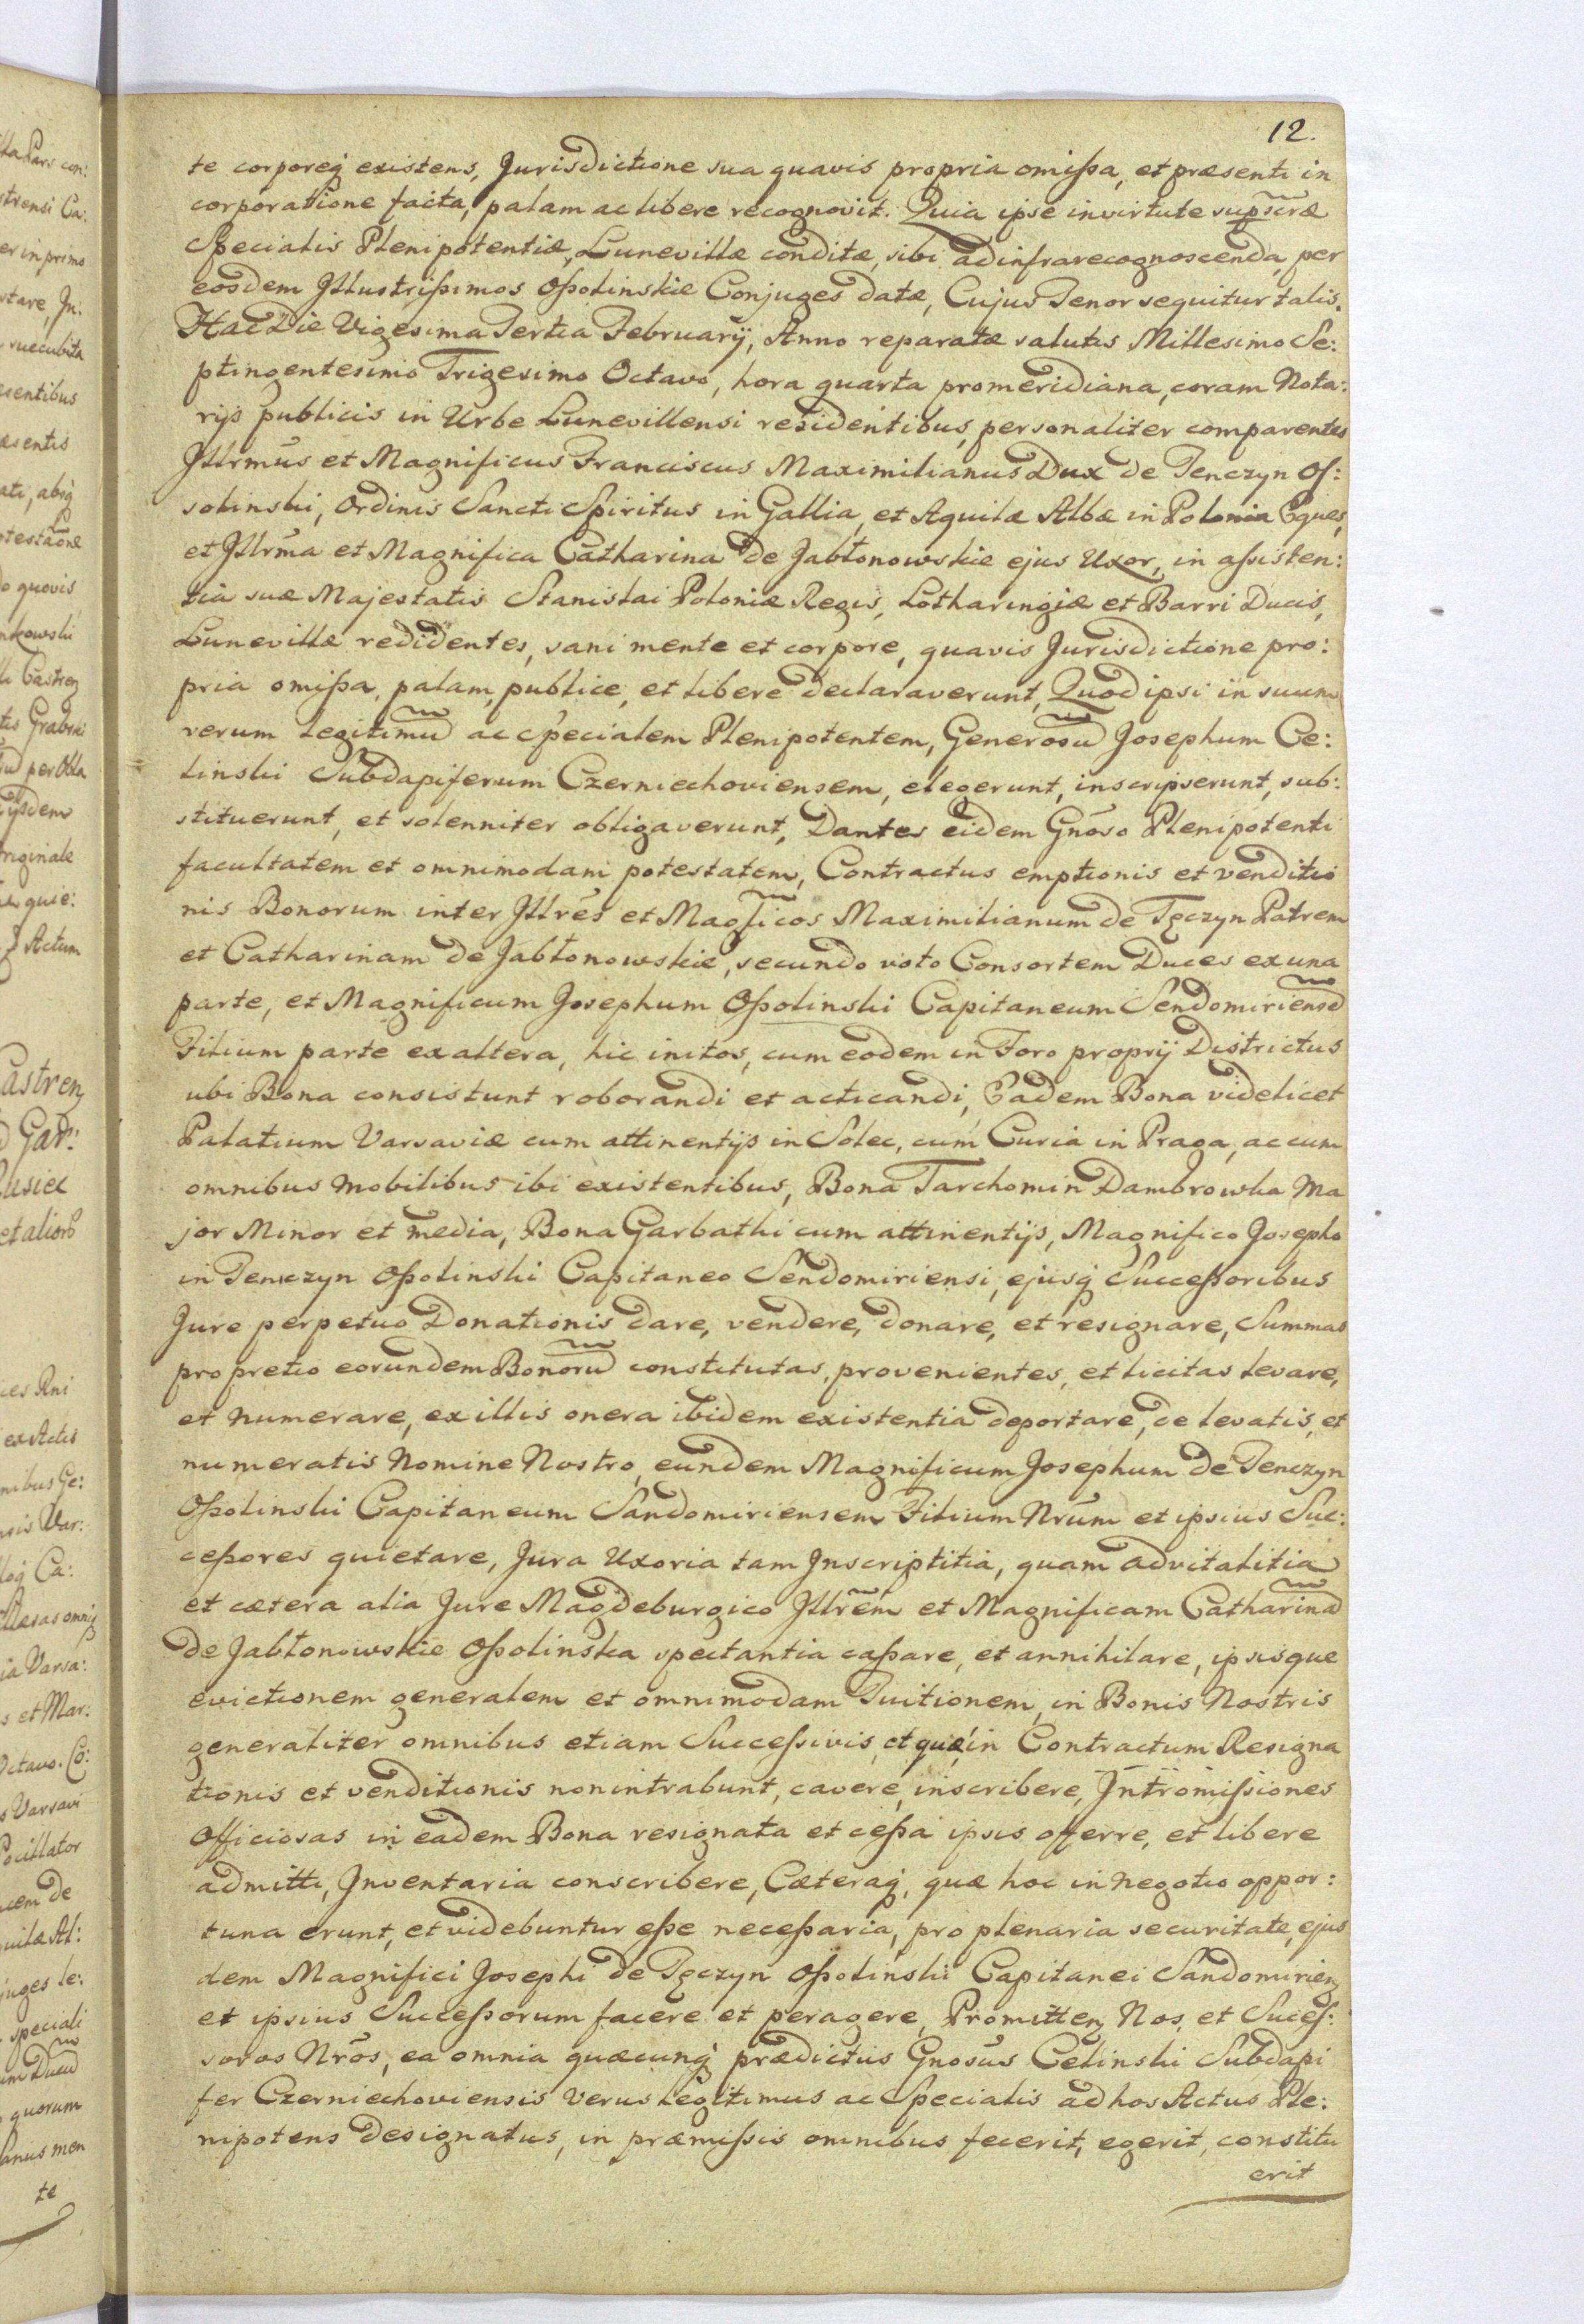 12.
te corporeq̃ existens, Jurisdictione sua quavis propria omißa, et præsenti in
corporatione facta, palam ac libere recognovit. Quia ipse in virtute supscræ
Specialis Plenipotentiæ, Lunevillæ conditæ, sibi ad infra recognoscenda, per
eosdem Illustrißimos Oßolinskie Conjuges datæ, Cujus Tenor sequitur talis.
Hac Die Vigesima Tertia February, Anno reparatæ salutis Millesimo Se:
ptingentesimo Trigesimo Octavo, hora quarta promeridiana, coram Nota:
rijs publicis in Urbe Lunevillensi residentibus, personaliter comparentes
Illrmus et Magnificus Franciscus Maximilianus Dux de Tenczyn Os:
solinski, Ordinis Sancti Spiritus in Gallia, et Aquilæ Albæ in Polonia Eques,
et Illrma et Magnifica Catharina de Jabłonowskie ejus Uxor, in aßisten:
tia suæ Majestatis Stanislai Poloniæ Regis, Lotharingiæ et Barri Ducis,
Lunevillæ redidentes, sani mente et corpore, quavis Jurisdictione pro:
pria omißa, palam, publice, et libere declaraverunt, Quod ipsi in suum
verum Legitimũ ac specialem Plenipotentem, Generosũ Josephum Ce:
linski Subdapiferum Czerniechoviensem, elegerunt, inscripserunt, sub:
stituerunt, et solenniter obligaverunt, Dantes eidem Gnõso Plenipotenti
facultatem et omnimodam potestatem, Contractus emptionis et venditio
nis Bonorum inter Illres et Magficos Maximilianum de Tęczyn Patrem
et Catharinam de Jabłonowskie, secundo voto Consortem Duces ex una
parte, et Magnificum Josephum Oßolinski Capitaneum Sendomiriensẽ
Filium parte ex altera, hic initos, cum eodem in Foro proprij Districtus
ubi Bona consistunt roborandi et acticandi, Eadem Bona videlicet
Palatium Varsaviæ cum attinentijs in Solec, cum Curia in Praga, ac cum
omnibus Mobilibus ibi existentibus, Bona Tarchomin Dambrowka Ma
jor Minor et media, Bona Garbathi cum attinentijs, Magnifico Josepho
in Tenczyn Oßolinski Capitaneo Sendomiriensi, ejusq̃ Succeßoribus
Jure perpetuo Donationis dare, vendere, donare, et resignare, Summas
pro pretio eorundem Bonorũ constitutas, provenientes, et licitas levare,
et numerare, ex illis onera ibidem existentia deportare, de levatis, et
numeratis Nomine Nostro, eundem Magnificum Josephum de Tenczyn
Oßolinski Capitaneum Sandomiriensem Filium Nrum et ipsius Suc:
ceßores quietare, Jura Uxoria tam Inscriptitia, quam advitalitia
et cætera alia Jure Magdeburgico Illrem et Magnificam Catharinã
de Jabłonowskie Oßolinska spectantia caßare, et annihilare, ipsisque
evictionem generalem et omnimodam Tuitionem, in Bonis Nostris
generaliter omnibus etiam Succeßivis, et quæ in Contractum Resigna
tionis et venditionis non intrabunt, cavere, inscribere, Intromißiones
Officiosas in eadem Bona resignata et ceßa ipsis offerre, et libere
admitti, Inventaria conscribere, Cæteraq̃, quæ hoc in negotio oppor:
tuna erunt, et videbuntur eße neceßaria, pro plenaria securitate, ejus
dem Magnifici Josephi de Tęczyn Oßolinski Capitanei Sandomirien
et ipsius Succeßorum facere et peragere, Promitten Nos, et Suceß:
soros Nros, ea omnia quæcunq̃ prædictus Gnosus Celinski Subdapi
fer Czerniechoviensis Verus Legitimus ac Specialis ad hos Actus Ple:
nipotens designatus, in præmißis omnibus fecerit, egerit, constitu
erit